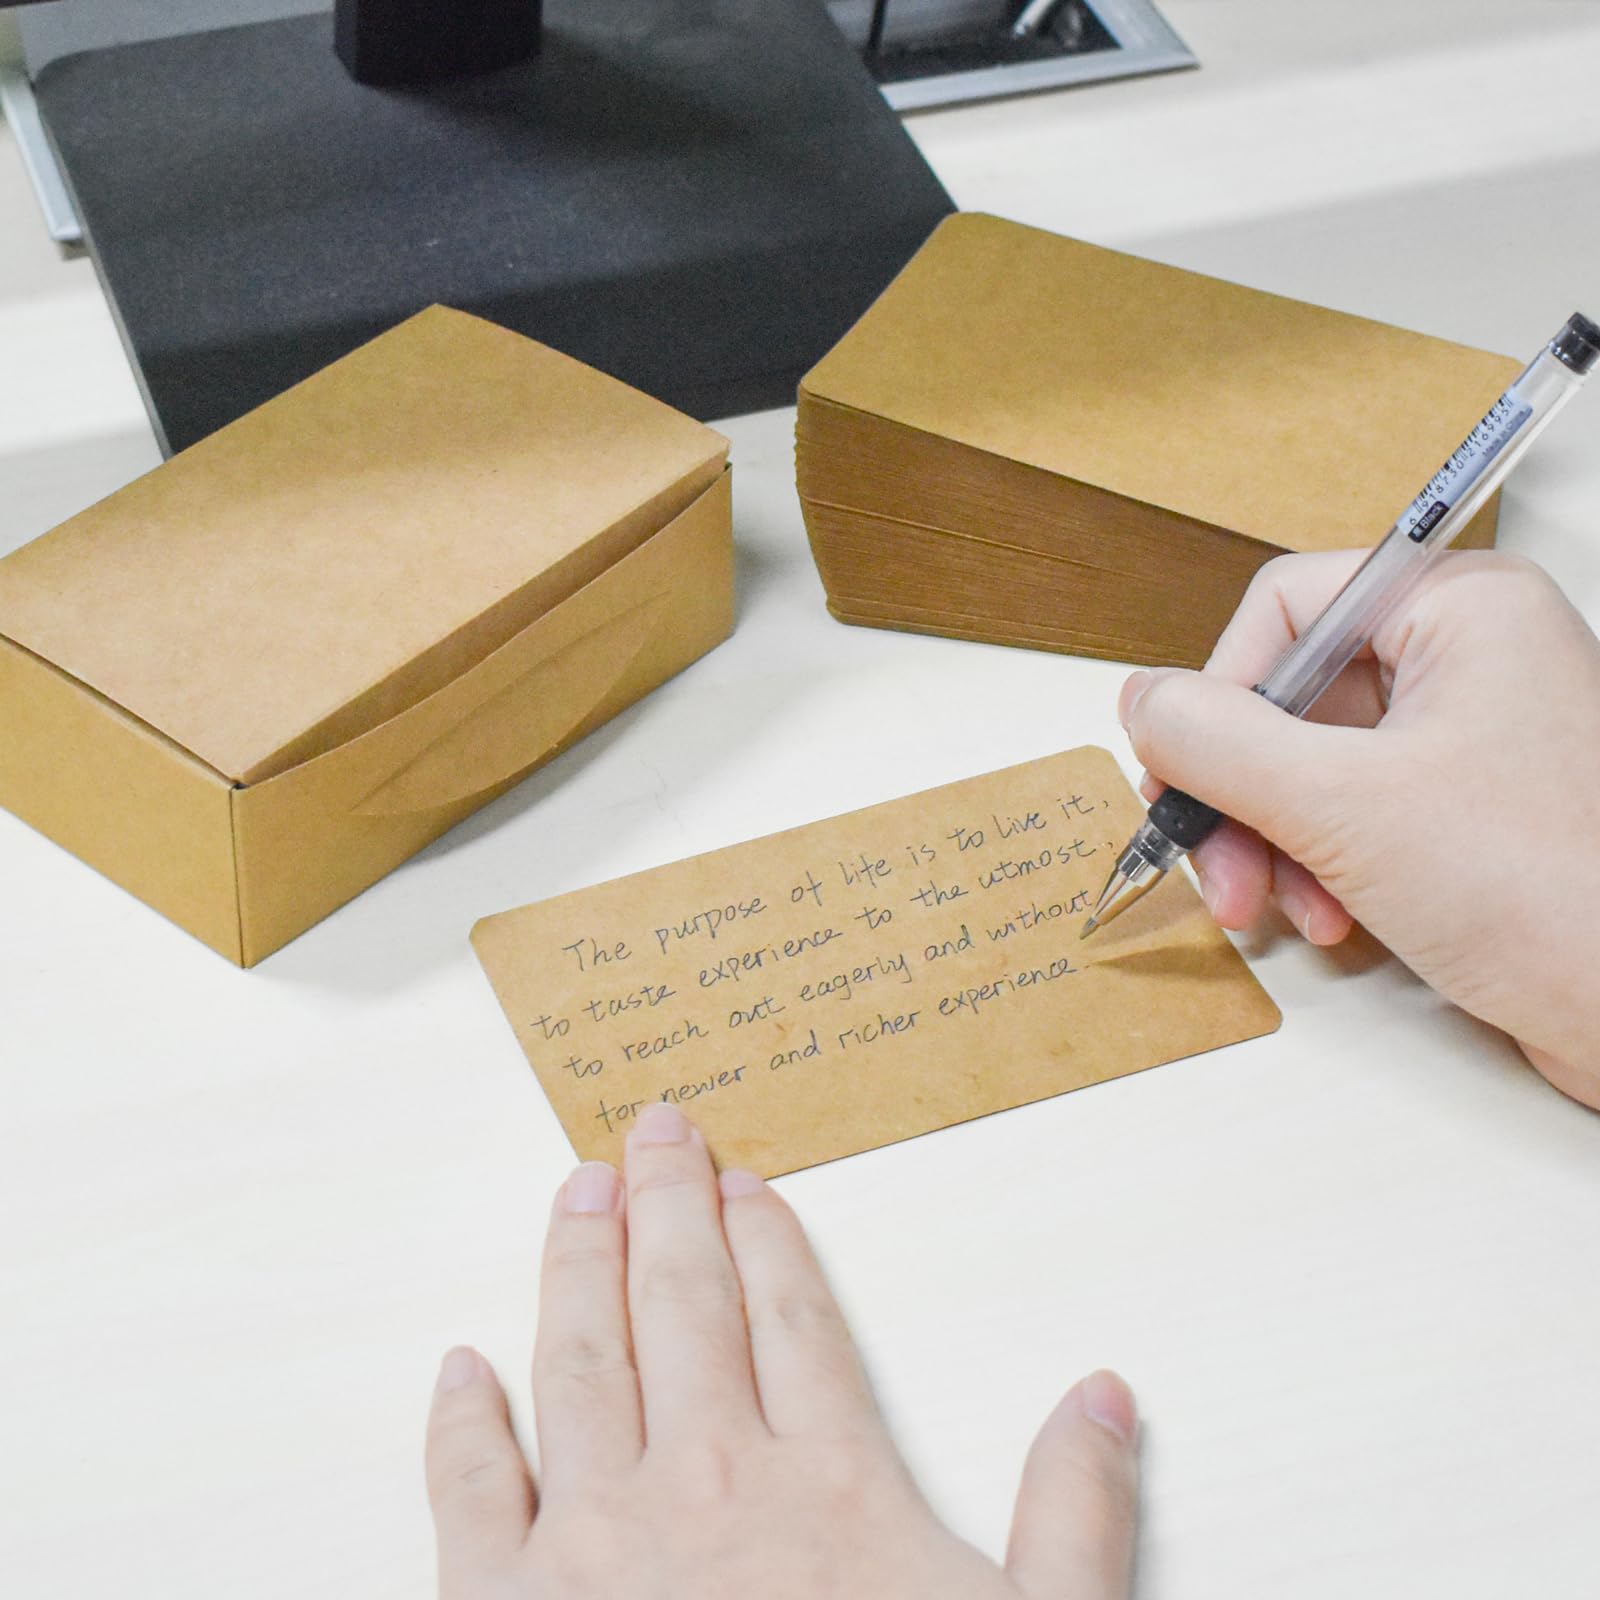 The purpose of life is to live it,
to taste experience to the utmost,
to reach out eagerly and without
for newer and richer experience.
6 918730 216995
Made in China
黑 Black